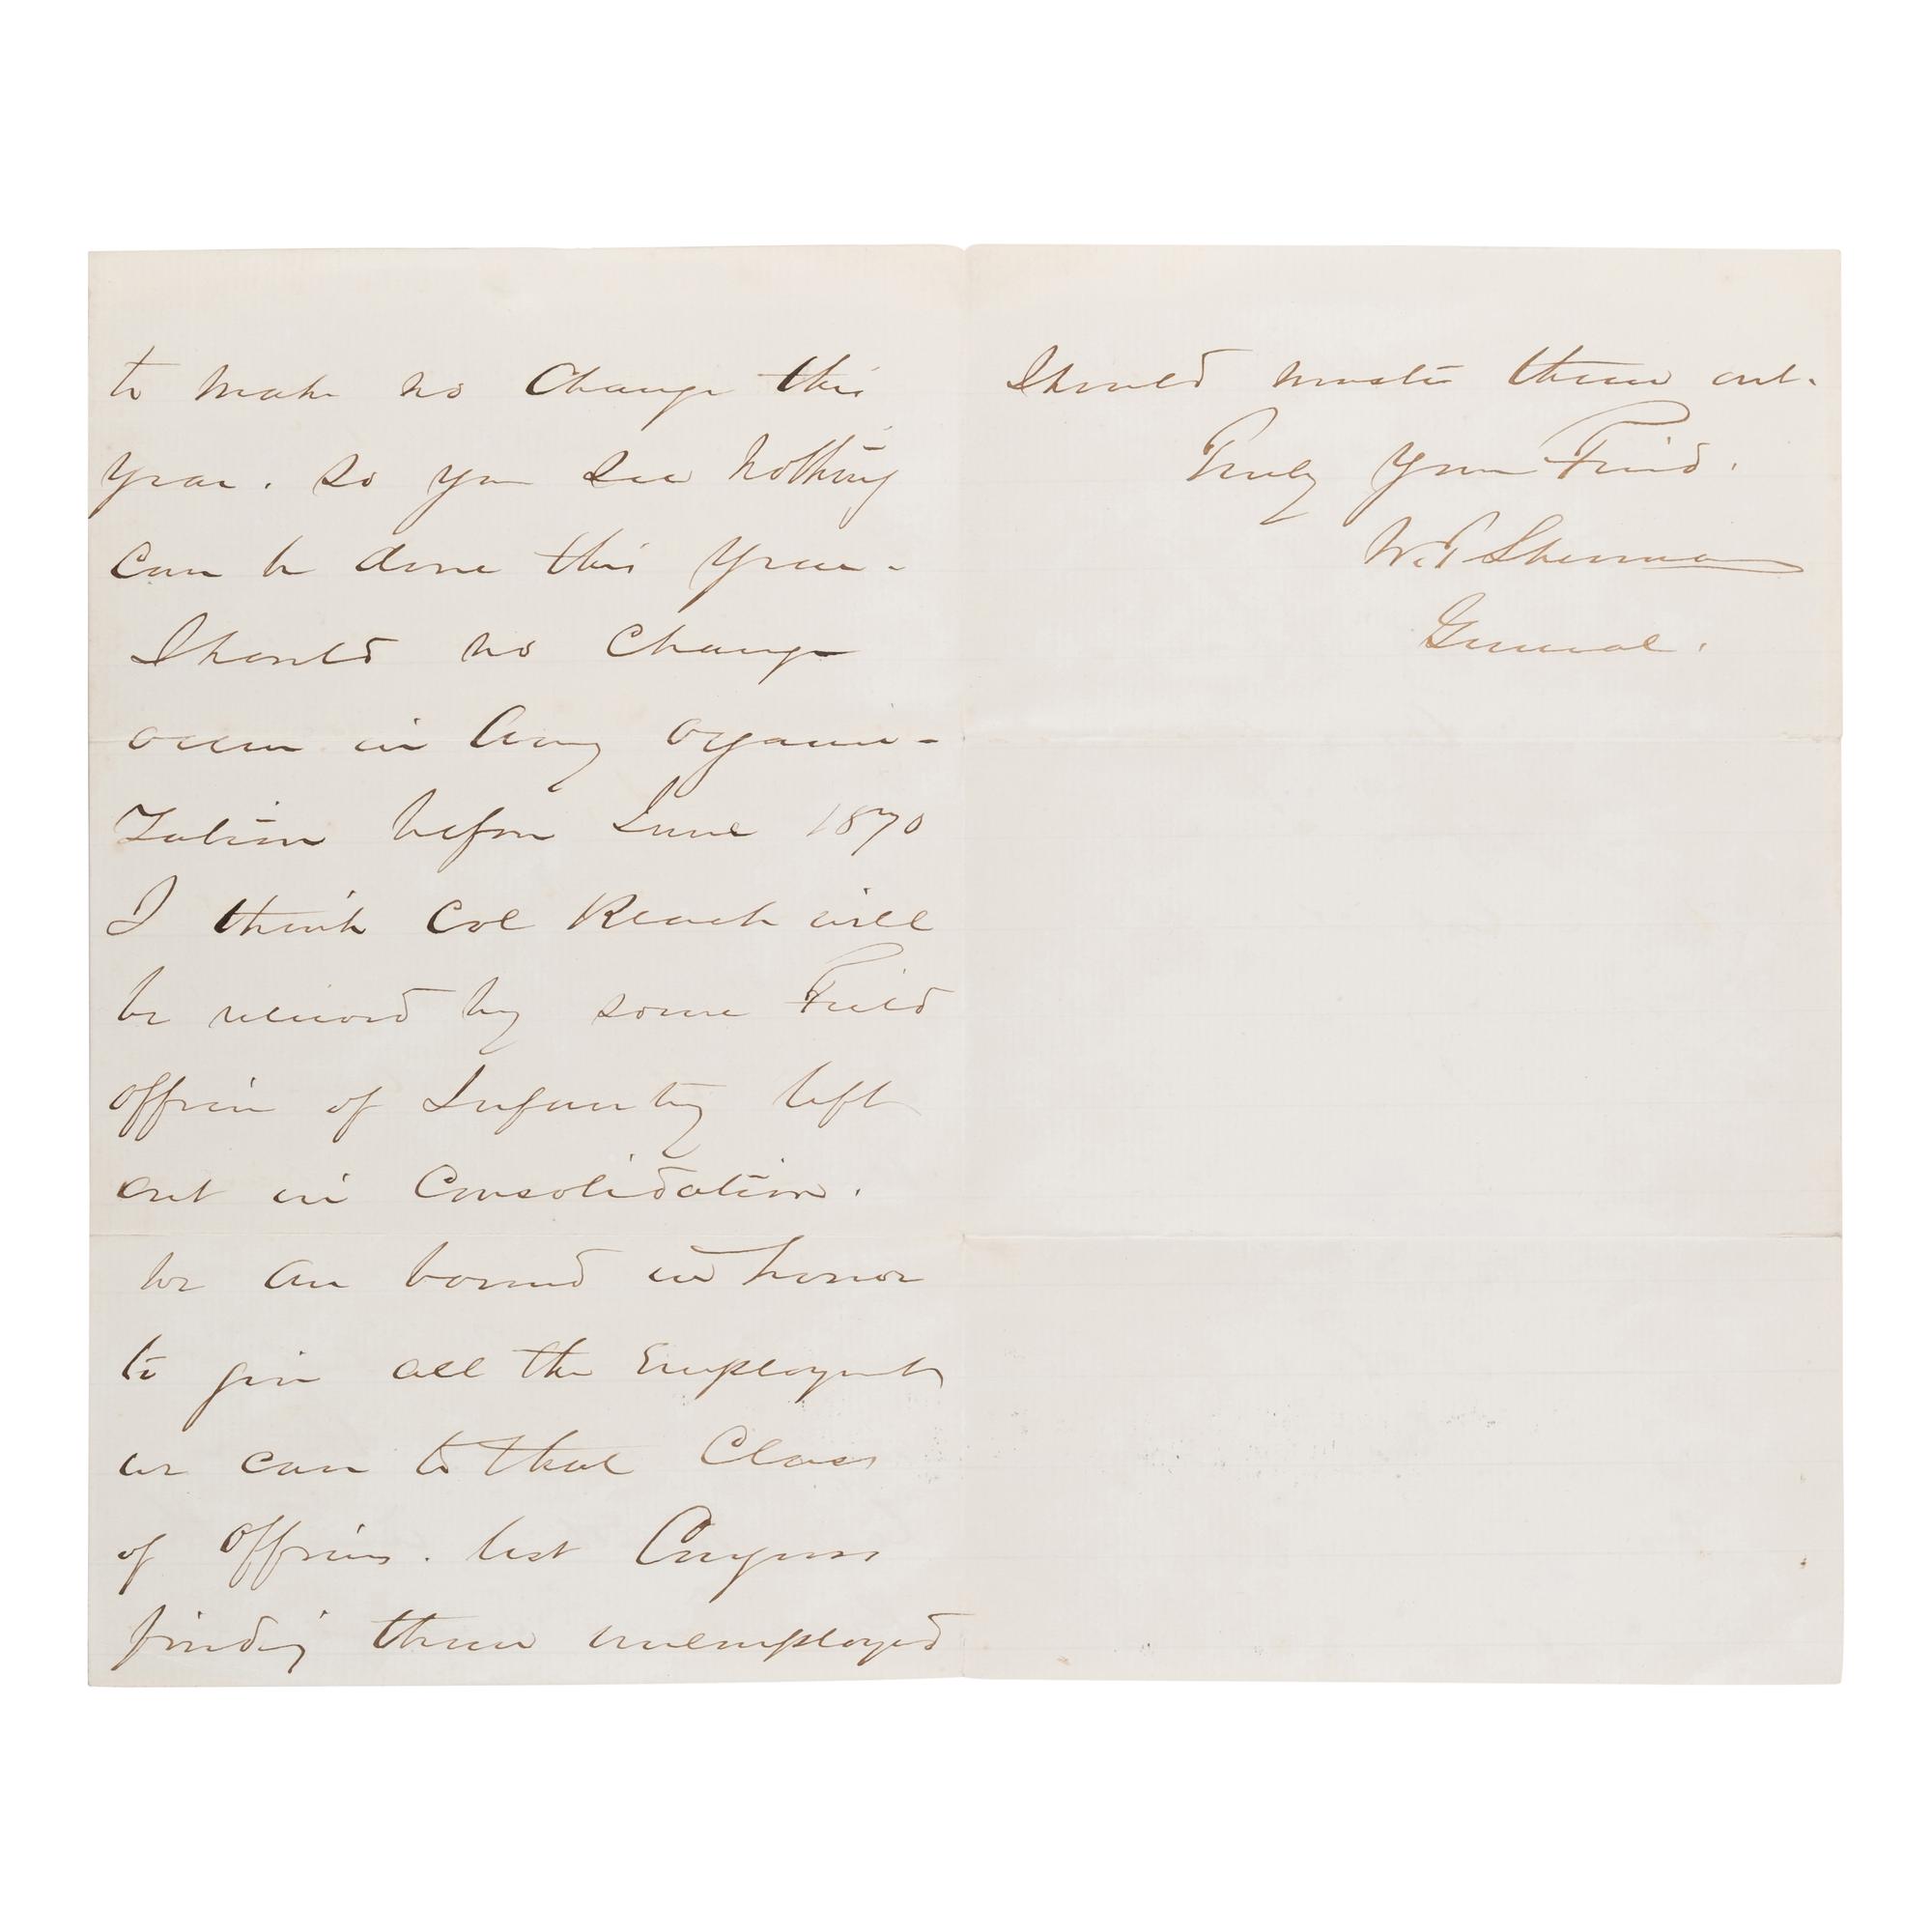 to make no Change this
year. so you see nothing
can be done this year.
Should no change
occur in Army organi-
zation before June 1870
I think Col Roach will
be relieved by some Field
officer of Infantry left
out in Consolidation.
We are bound in honor
to give all the Employment
we can to that Class
of Officers. lest Congress
finding them unemployed
Should muster them out.
Truly Your Friend.
W.T. Sherman
General.